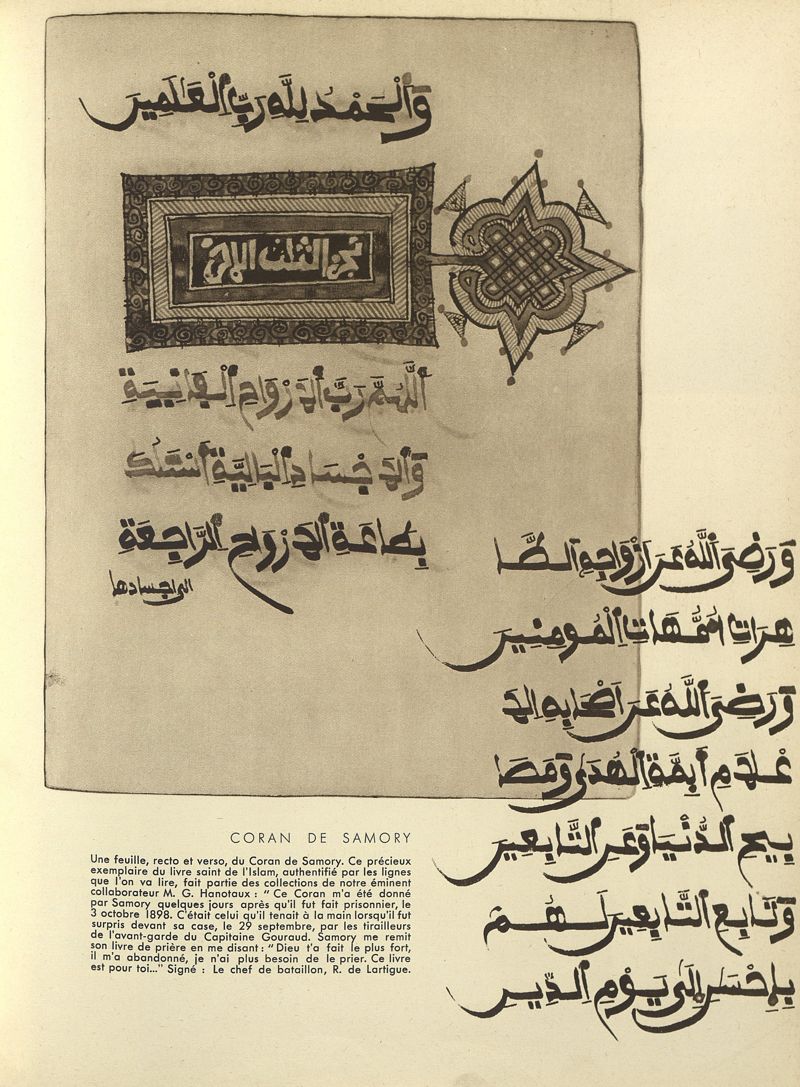 وَالْحَمْدُ لِلَّهِ رَبِّ الْعَلَمِينَ
نجز الثلث
اَللَّهُمَّ رَبَّ اَلاَرْوَاحِ اِلْفَانِيَةِ
وَالاَجْسَادِ اِلْبَالِيَةِ أَسْئَلُكَ
بِطَاعَةِ اِلاَرْوَاحِ اِلرَّاجِعَةِ
الى اجسادها
وَرَضِيَ اَللَّهُ عَنَ اَزْوَاجِهِ اِلطَّا
هِرَاتِ أُمَّهَاتِ اِلْمُومِنِينَ
وَرَضِيَ اَللَّهُ عَنَ اَصْحَابِهِ اِلاَ
عْلاَمِ أَيِمَّةِ اِلْهُدَى وَمَصَا
بِيحِ اِلدُّنْيَا وَعَنِ اِلتَّابِعِينَ
وَتَابِعِ اِلتَّابِعِينَ لَهُم
بِإِحْسَنٍ اِلَى يَوْمِ اِلدِّينِ
CORAN DE SAMORY
Une feuille, recto et verso, du Coran de Samory. Ce précieux
exemplaire du livre saint de l'Islam, authentifié par les lignes
que l'on va lire, fait partie des collections de notre éminent
collaborateur M. G. Hanotaux : " Ce Coran m'a été donné
par Samory quelques jours après qu'il fut fait prisonnier, le
3 octobre 1898. C'était celui qu'il tenait à la main lorsqu'il fut
surpris devant sa case, le 29 septembre, par les tirailleurs
de l'avant-garde du Capitaine Gouraud. Samory me remit
son livre de prière en me disant : " Dieu t'a fait le plus fort,
il m'a abandonné, je n'ai plus besoin de le prier. Ce livre
est pour toi..." Signé : Le chef de bataillon, R. de Lartigue.